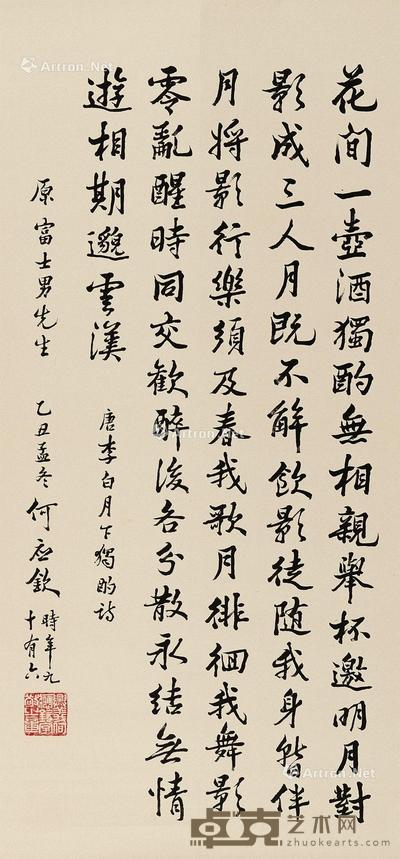 花間一壺酒獨酌無相親舉杯邀明月對
影成三人月既不解飲影徒隨我身暫伴
月將影行樂須及春我歌月徘徊我舞影
零亂醒時同交歡醉後各分散永結無情
遊相期邈雲漢
唐李白月下獨酌詩
原富士男先生
乙丑孟冬 何應欽 時年九
十有六
Artron.Net
Artron.Net
Artron.Net
Artron.Net
Artron.Net
Artron.Net
卓克艺术网
www.zhuokearts.com